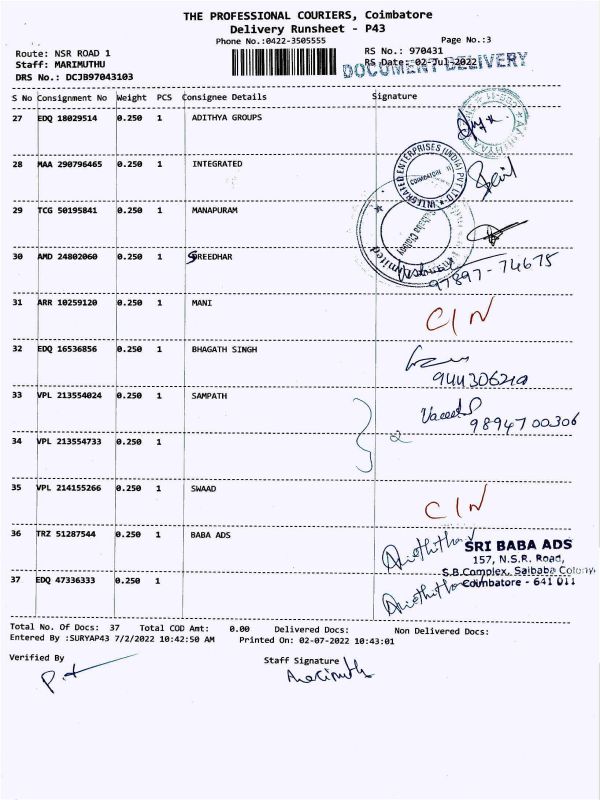 THE PROFESSIONAL COURIERS, Coimbatore
Delivery Runsheet - P43
Phone No.:0422-3505555
Page No.:3
Route: NSR ROAD 1
RS No.: 970431
Staff: MARIMUTHU
RS Date: 02-Jul-2022
DOCUMENT DELIVERY
DRS No.: DCJB97043103
S No Consignment No Weight PCS Consignee Details Signature
27 EDQ 18029514 0.250 1 ADITHYA GROUPS
28 MAA 290796465 0.250 1 INTEGRATED
INTEGRATED ENTERPRISES (INDIA) PVT LTD
COIMBATORE
29 TCG 50195841 0.250 1 MANAPURAM
30 AMD 24802060 0.250 1 SREEDHAR
97897-74675
31 ARR 10259120 0.250 1 MANI
C/N
32 EDQ 16536856 0.250 1 BHAGATH SINGH
33 VPL 213554024 0.250 1 SAMPATH
9894700306
34 VPL 213554733 0.250 1
2
35 VPL 214155266 0.250 1 SWAAD
C/N
36 TRZ 51287544 0.250 1 BABA ADS
SRI BABA ADS
157, N.S.R. Road,
S.B.Complex, Saibaba Colony,
Coimbatore - 641 011
37 EDQ 47336333 0.250 1
Total No. Of Docs: 37 Total COD Amt: 0.00 Delivered Docs: Non Delivered Docs:
Entered By :SURYAP43 7/2/2022 10:42:50 AM Printed On: 02-07-2022 10:43:01
Verified By
Staff Signature